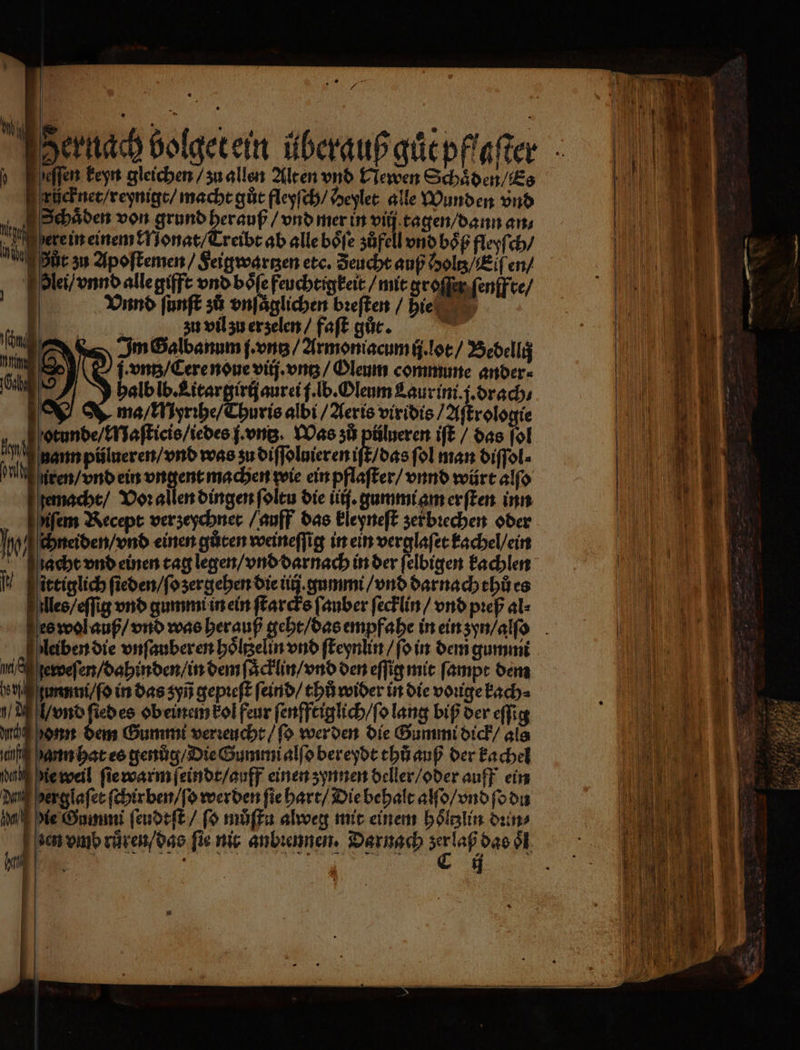 Hernach volget ein überauß gůt pflaster
dessen keyn gleichen / zu allen Alten vnd Newen Schåden/Es
trücknet/reynigt/ macht gůt fleysch/ Heylet alle Wunden vnd
Schåden von grund herauß / vnd mer in viij. tagen/dann an⸗
dere in einem Monat/Treibt ab alle bőse zůfell vnd bőß fleysch/
Gůt zu Apostemen / Feigwartzen etc. Zeucht auß Holtz/Eisen/
Blei/ vnnd alle gifft vnd bőse feuchtigkeit / mit grosser senffte/
Vnnd sunst zů vnsåglichen bresten / hie
zu vil zu erzelen / fast gůt.
Im Galbanum j.vntz / Armoniacum ij.lot / Bedellij
j.vntz/Cere noue viij.vntz / Oleum commune ander⸗
halb lb.Litargirij aurei j.lb.Oleum Laurini.j.drach⸗
ma/Myrrhe/Thuris albi / Aeris viridis / Astrologie
rotunde/Masticis/iedes j.vntz. Was zů pülueren ist / das sol
mann pülueren/vnd was zu dissoluieren ist/das sol man dissol⸗
uiren/vnd ein vngent machen wie ein pflaster/ vnnd würt also
gemacht/ Vor allen dingen soltu die iiij. gummi am ersten inn
disem Recept verzeychnet / auff das kleynest zerbrechen oder
schneiden/vnd einen gůten weinessig in ein verglaset kachel/ein
nacht vnd einen tag legen/vnd darnach in der selbigen kachlen
sittiglich sieden/so zergehen die iiij.gummi /vnd darnach thů es
alles/essig vnd gummi in ein starcks sauber secklin / vnd preß al⸗
les wol auß/ vnd was herauß geht/das empfahe in ein zyn/also
bleiben die vnsauberen hőltzelin vnd steynlin / so in dem gummi
gewesen/dahinden/in dem såcklin/vnd den essig mit sampt dem
gummi/so in das zyn̄ geprest seind/ thů wider in die vorige kach⸗
el/vnd sied es ob einem kol feur senfftiglich/so lang biß der essig
vonn dem Gummi verreucht / so werden die Gummi dick/ als
dann hat es genůg/Die Gummi also bereydt thů auß der kachel
die weil sie warm seindt/auff einen zynnen deller/oder auff ein
verglaset schirben/so werden sie hart/ Die behalt also/vnd so du
die Gummi seudtst / so můstu alweg mit einem hőltzlin drin⸗
nen vmb růren/das sie nit anbrennen. Darnach zerlaß das ől
C ij